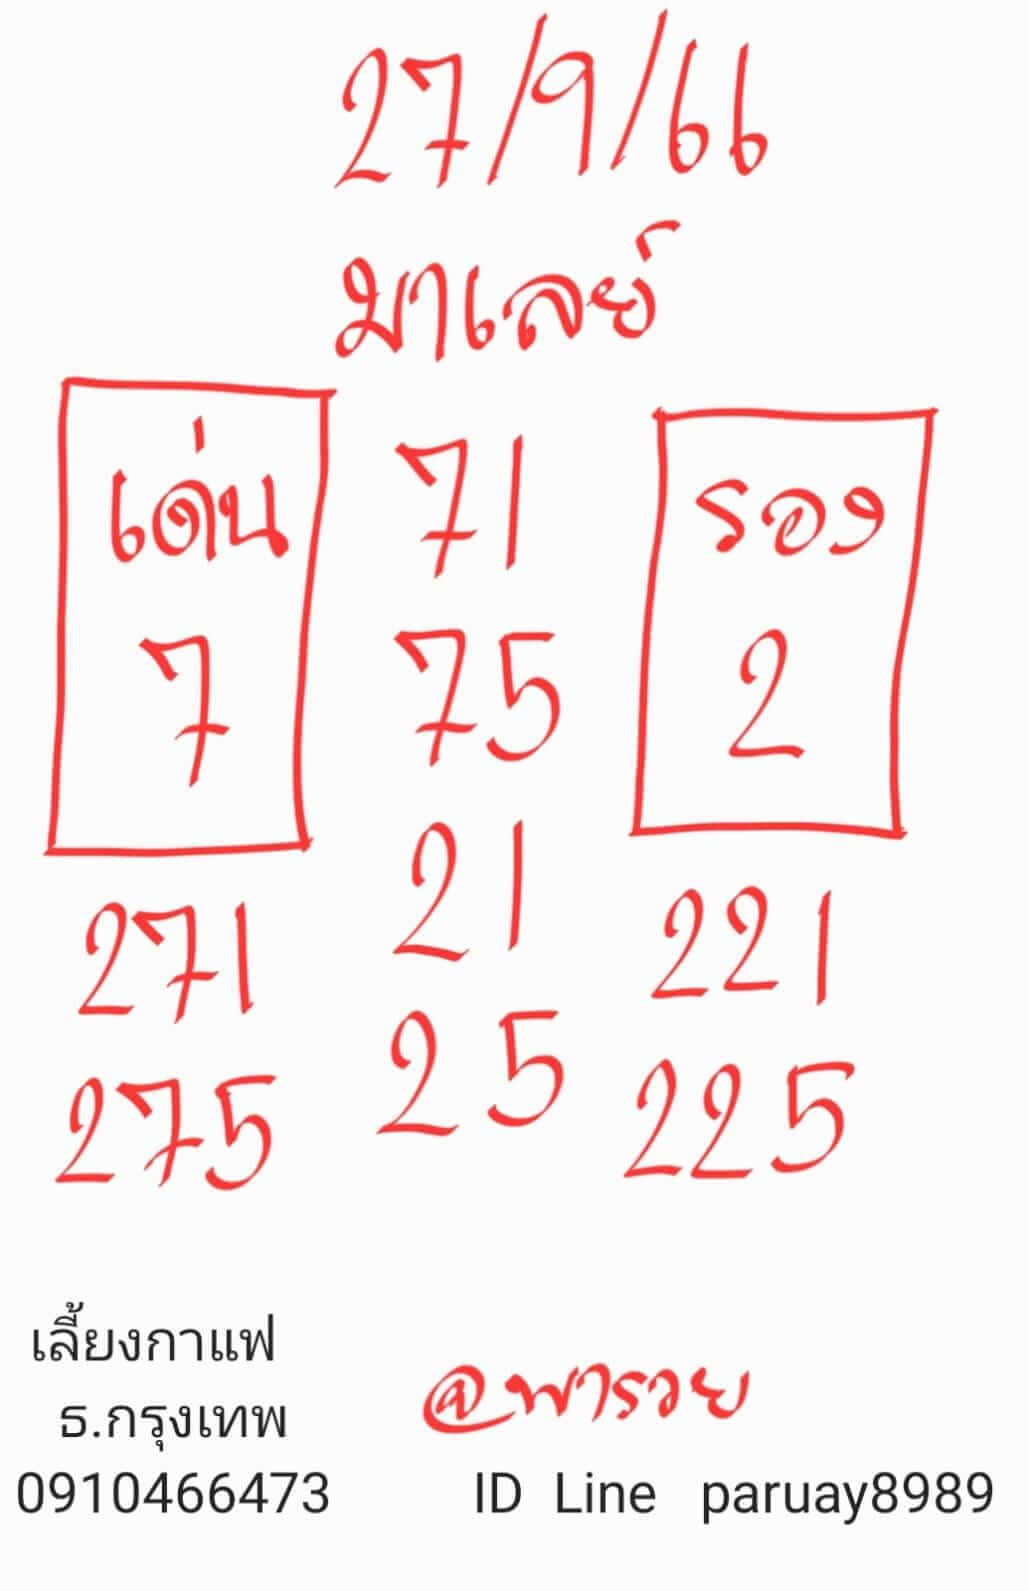 27/9/66
มาเลย์
เด่น
7
71
75
21
25
รอง
2
271
275
221
225
เลี้ยงกาแฟ
ธ.กรุงเทพ
0910466473
@พารวย
ID Line paruay8989